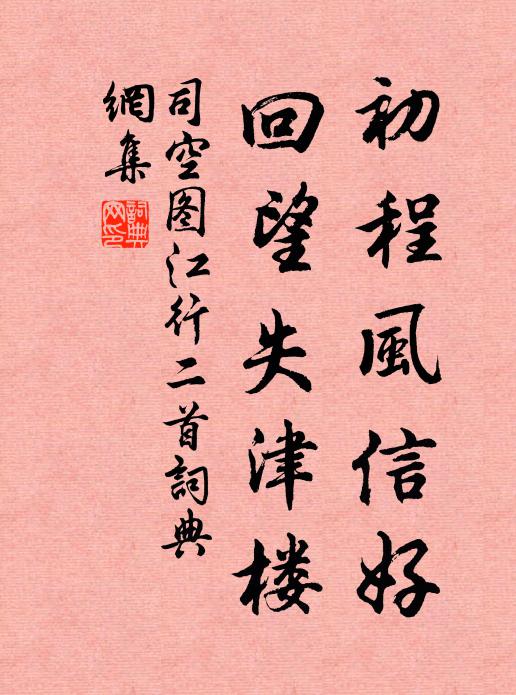 初程風信好
回望失津楼
司空图江行二首詞典
網集
詞典
网印